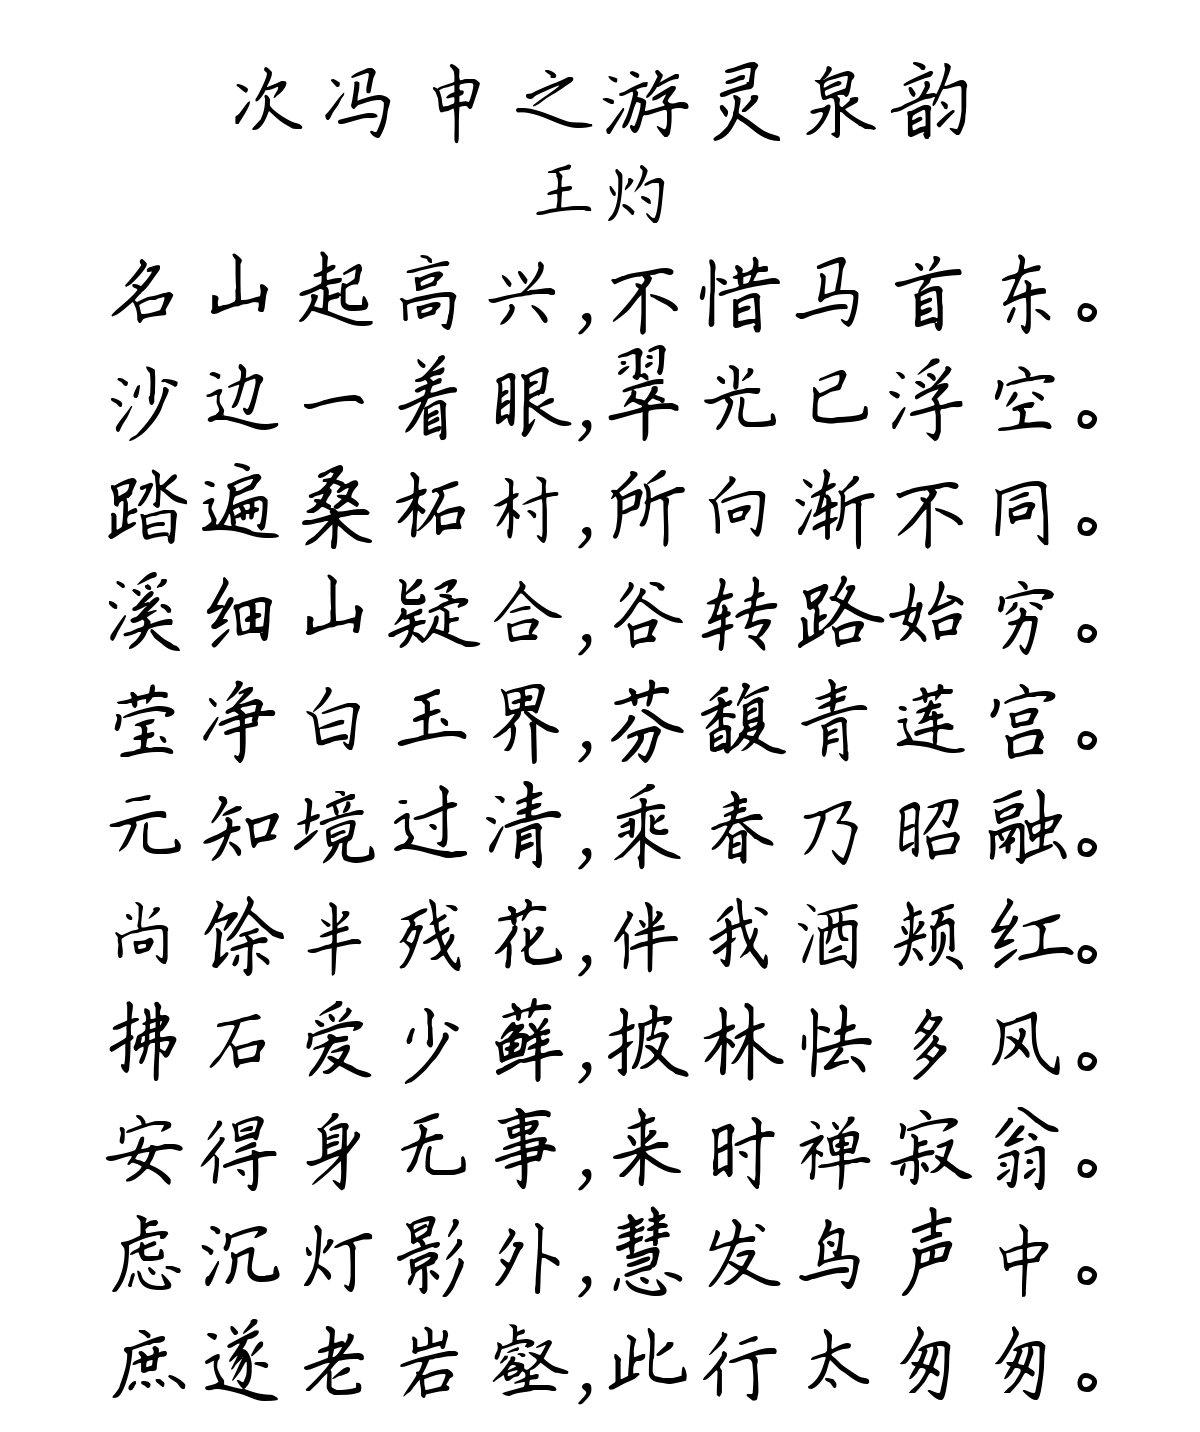 次冯申之游灵泉韵
王灼
名山起高兴,不惜马首东。
沙边一着眼,翠光已浮空。
踏遍桑柘村,所向渐不同。
溪细山疑合,谷转路始穷。
莹净白玉界,芬馥青莲宫。
元知境过清,乘春乃昭融。
尚馀半残花,伴我酒颊红。
拂石爱少藓,披林怯多风。
安得身无事,来时禅寂翁。
虑沉灯影外,慧发鸟声中。
庶遂老岩壑,此行太匆匆。